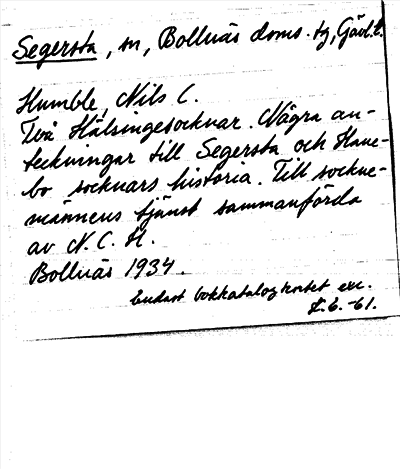 Segersta, sn, Bollnäs doms. tg, Gävl. l.
Humble, Nils C.
Två Hälsingesocknar. Några an-
teckningar till Segersta och Hane-
bo socknars historia. Till sockne-
männens tjänst sammanförda
av N. C. H.
Bollnäs 1934.
Endast bokkatalogkortet exc.
6.-61.